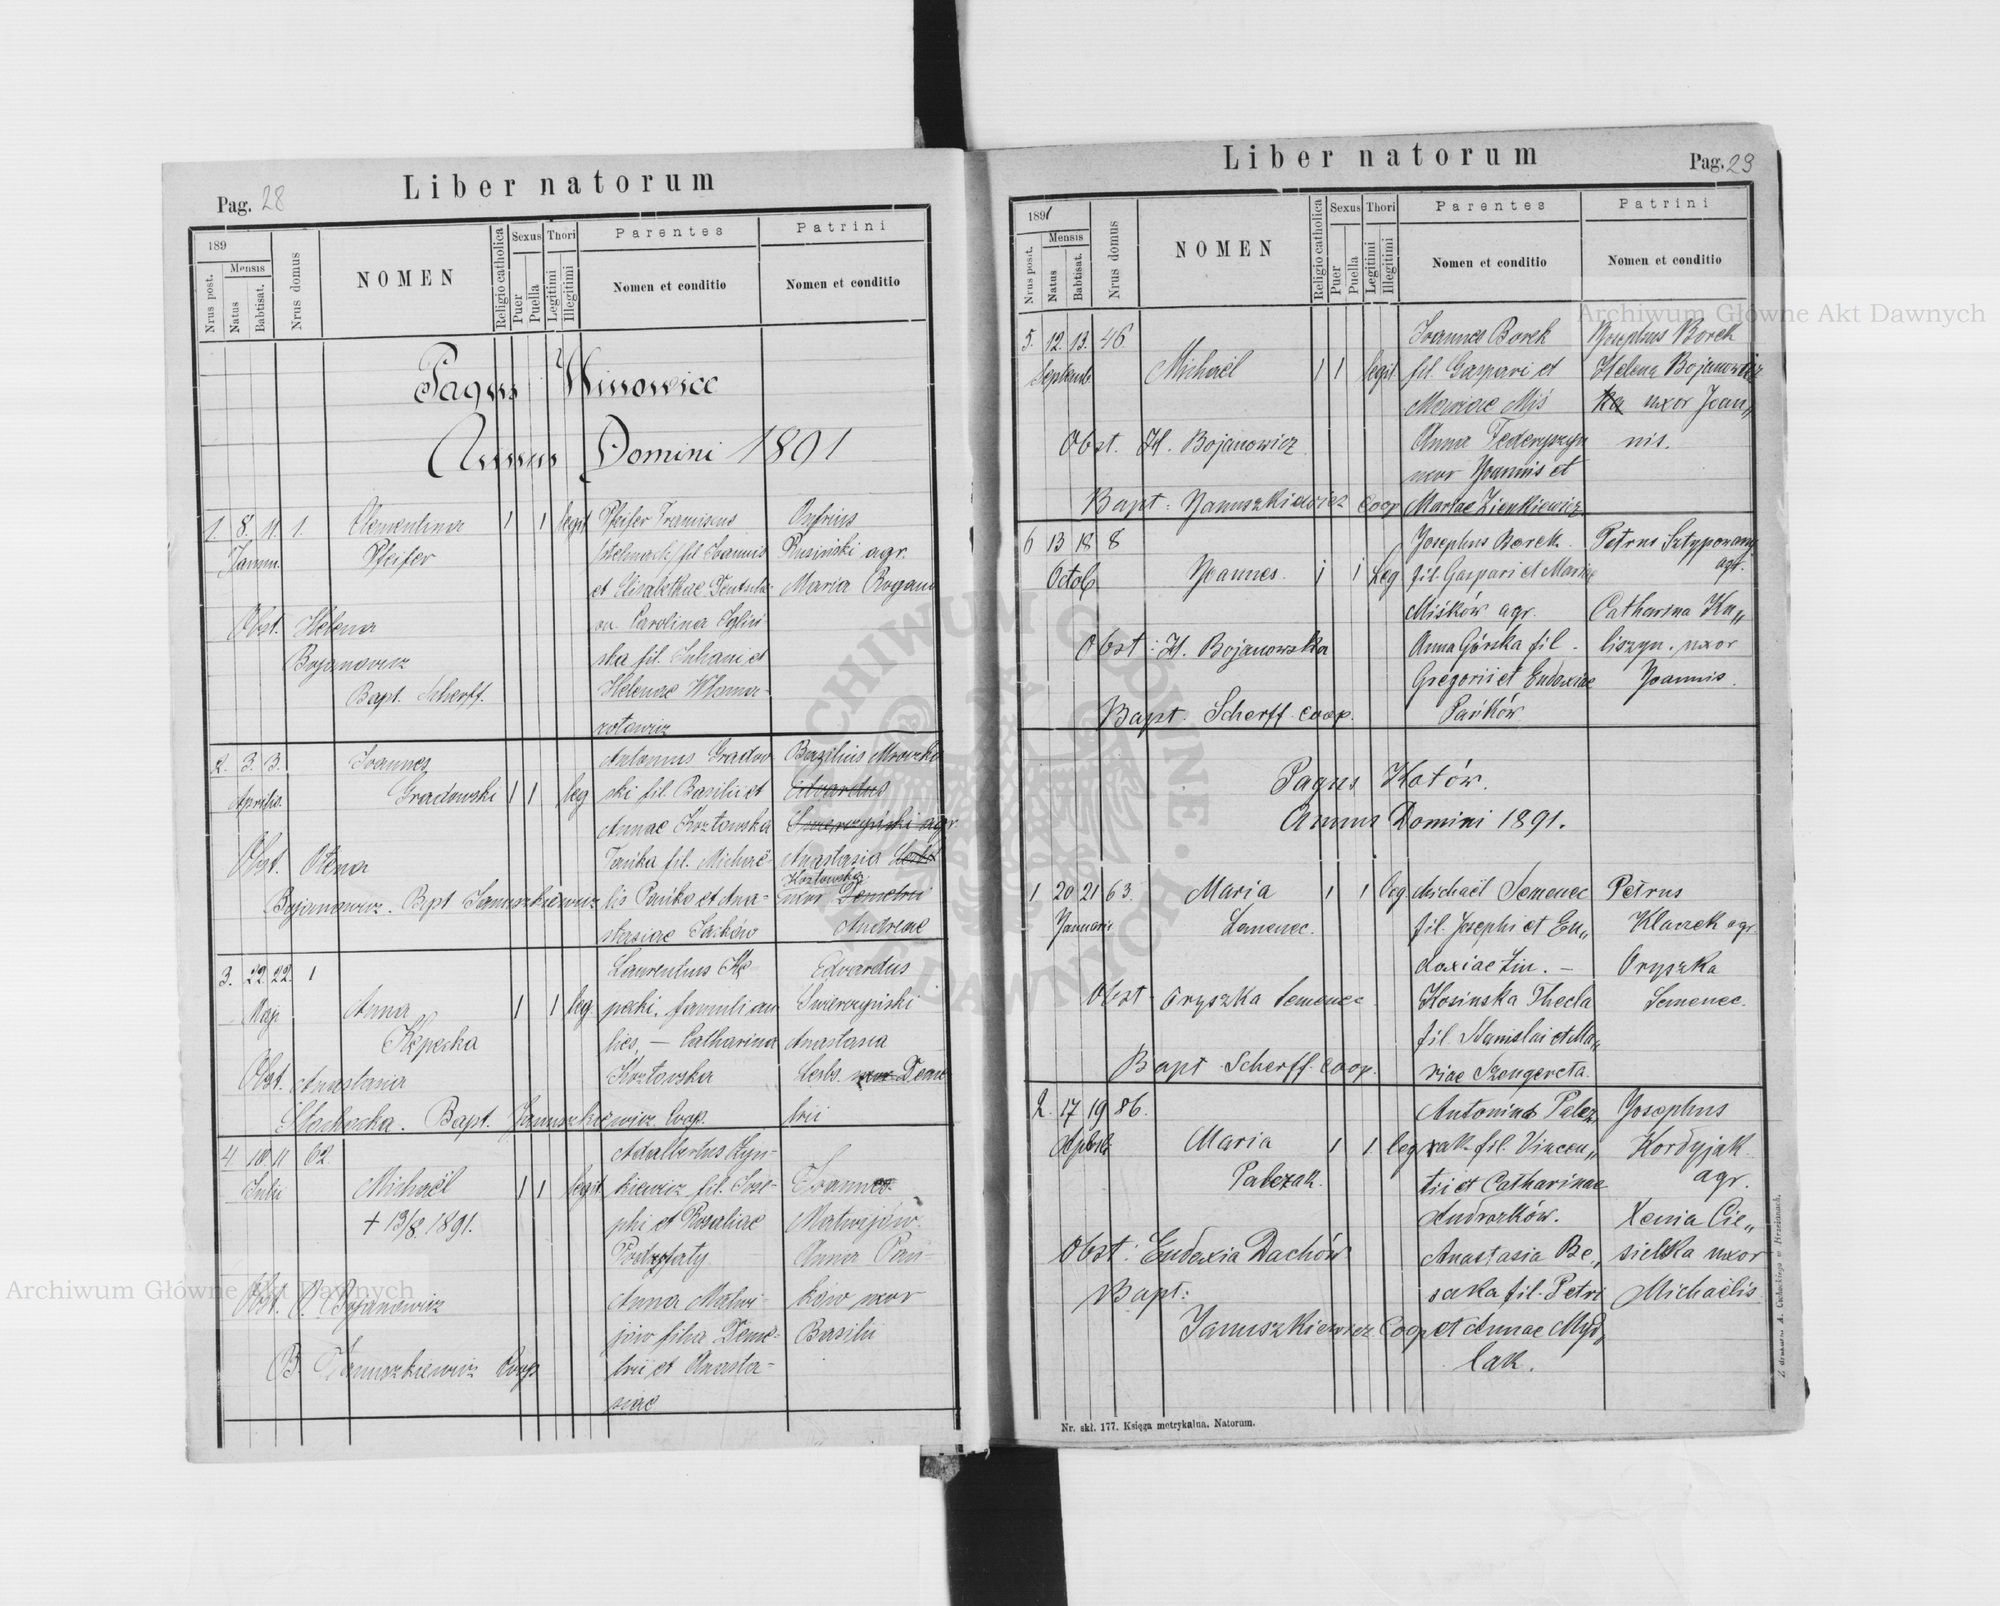 Liber natorum
Pag. 28
189
Nrus post.
Mensis
Natus
Babtisat.
Nrus domus
NOMEN
Religio catholica
Sexus
Puer
Puella
Thori
Legitimi
Illegitimi
Parentes
Nomen et conditio
Patrini
Nomen et conditio
Pagus Winowice
Annus Domini 1891
1. 8. 11. 1. Clementina 1 1 legit Pfeifer Franciscus Onfrius
Januar. Pfeifer stelmach fil Joannis Rusiński agr.
et Elisabethae Maria
Obst. Helena Carolina
Bojanowicz ska fil. et
Bapt. Scherff. Helenae
2. 3. 3. Joannes Antonius Gradow Basilius
Aprilis. Gradowski 1 1 leg ski fil. Basilii et Edvardus
Annae Kozłowska Swierczyński agr.
Obst. Olena fil. Michaë- Anastasia
Kozłowska
Bojanowicz. Bpt Januszkiewicz lis et Ana- uxor Demetrii
stasiae Andreae
3. 22. 22. 1 Laurentius Skę Edvardus
Maji Anna 1 1 leg pecki, famuli au Swierczyński
Skępecka lies, — Catharina Anastasia
Obst. Anastasia Kozłowska uxor Deme
Bapt. Januszkiewicz Coop. trii
4 10 11 62. Adalbertus Zyn-
Julii Michaël 1 1 legit kiewicz fil. Jose- Joannes
+ 13/8. 1891. phi et Rosaliae Matwijów
Anna Pań-
Obst. O. Bojanowicz Anna Matwi- ków uxor
jów filia Deme- Basilii
B. Januszkiewicz Coop trii et Anasta-
siae
Liber natorum
Pag. 29
1891
Nrus posit.
Mensis
Natus
Babtisat.
Nrus domus
NOMEN
Religio catholica
Sexus
Puer
Puella
Thori
Legitimi
Illegitimi
Parentes
Nomen et conditio
Patrini
Nomen et conditio
5. 12. 13. 46. Joannes Borek Josephus Borek
Septemb. Michaël 1 1 legit fil. Gaspari et Helena Bojanowicz
Mariae Miś uxor Joan„
Obst. H. Bojanowicz Anna Federyszyn nis.
uxor Joannis et
Bapt: Januszkiewicz Coop Mariae Zienkiewicz
6 13 18 8 Josephus Borek. Petrus
Octob Joannes. 1 1 Leg fil. Gaspari et Mariae agr.
Miśków agr. Catharina Ha„
Obst: H. Bojanowska Anna Górska fil. liszyn. uxor
Gregorii et Eudoxiae Joannis.
Bapt. Scherff. coop. Pańków
Pagus Kotów.
Annus Domini 1891.
1 20 21 63. Maria 1 1 leg Michaël Semenec Petrus
Januarii Semenec. fil. Josephi et Eu„ Klaczek agr.
doxiae Liu. — Oryszka
Obst. Oryszka Semenec. Kosinska Thecla Semenec.
fil. Stanislai et Ma„
Bapt Scherff. coop. riae Szengereta.
2. 17 19 86. Antonius Palcz, Josephus
Maria 1 1. leg rak. fil. Vincen„ Kordyjak
Palczak. tii et Catharinae agr.
Androrków. Xenia Cie„
Obst: Eudoxia Dachów Anastasia Be„ sielska uxor
Bapt: saka fil. Petri Michaëlis
Januszkiewicz Coop et Annae Myd„
lak.
Nr. skł. 177. Księga metrykalna. Natorum.
Z drukarni A. Cichockiego w Brzeżanach.
Archiwum Główne Akt Dawnych
Archiwum Główne Akt Dawnych
ARCHIWUM GŁÓWNE AKT DAWNYCH